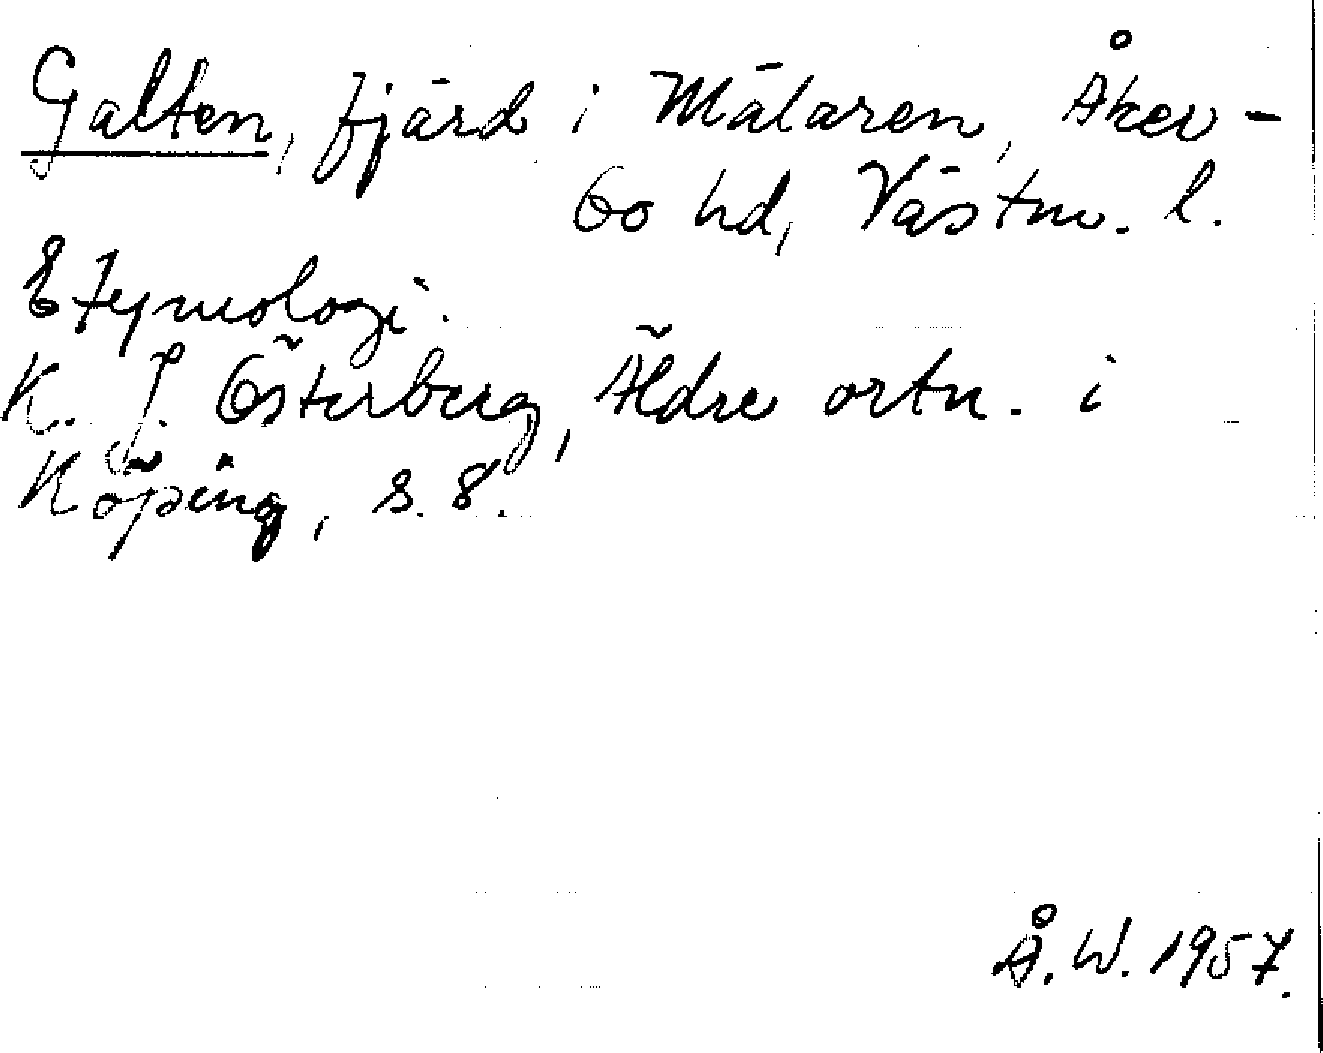 Galten, fjärd i Mälaren, Åker-
bo hd, Västm. l.
Etymologi.
K. J. Österberg, Äldre ortn. i
Köping, s. 8.
Å. W. 1957.